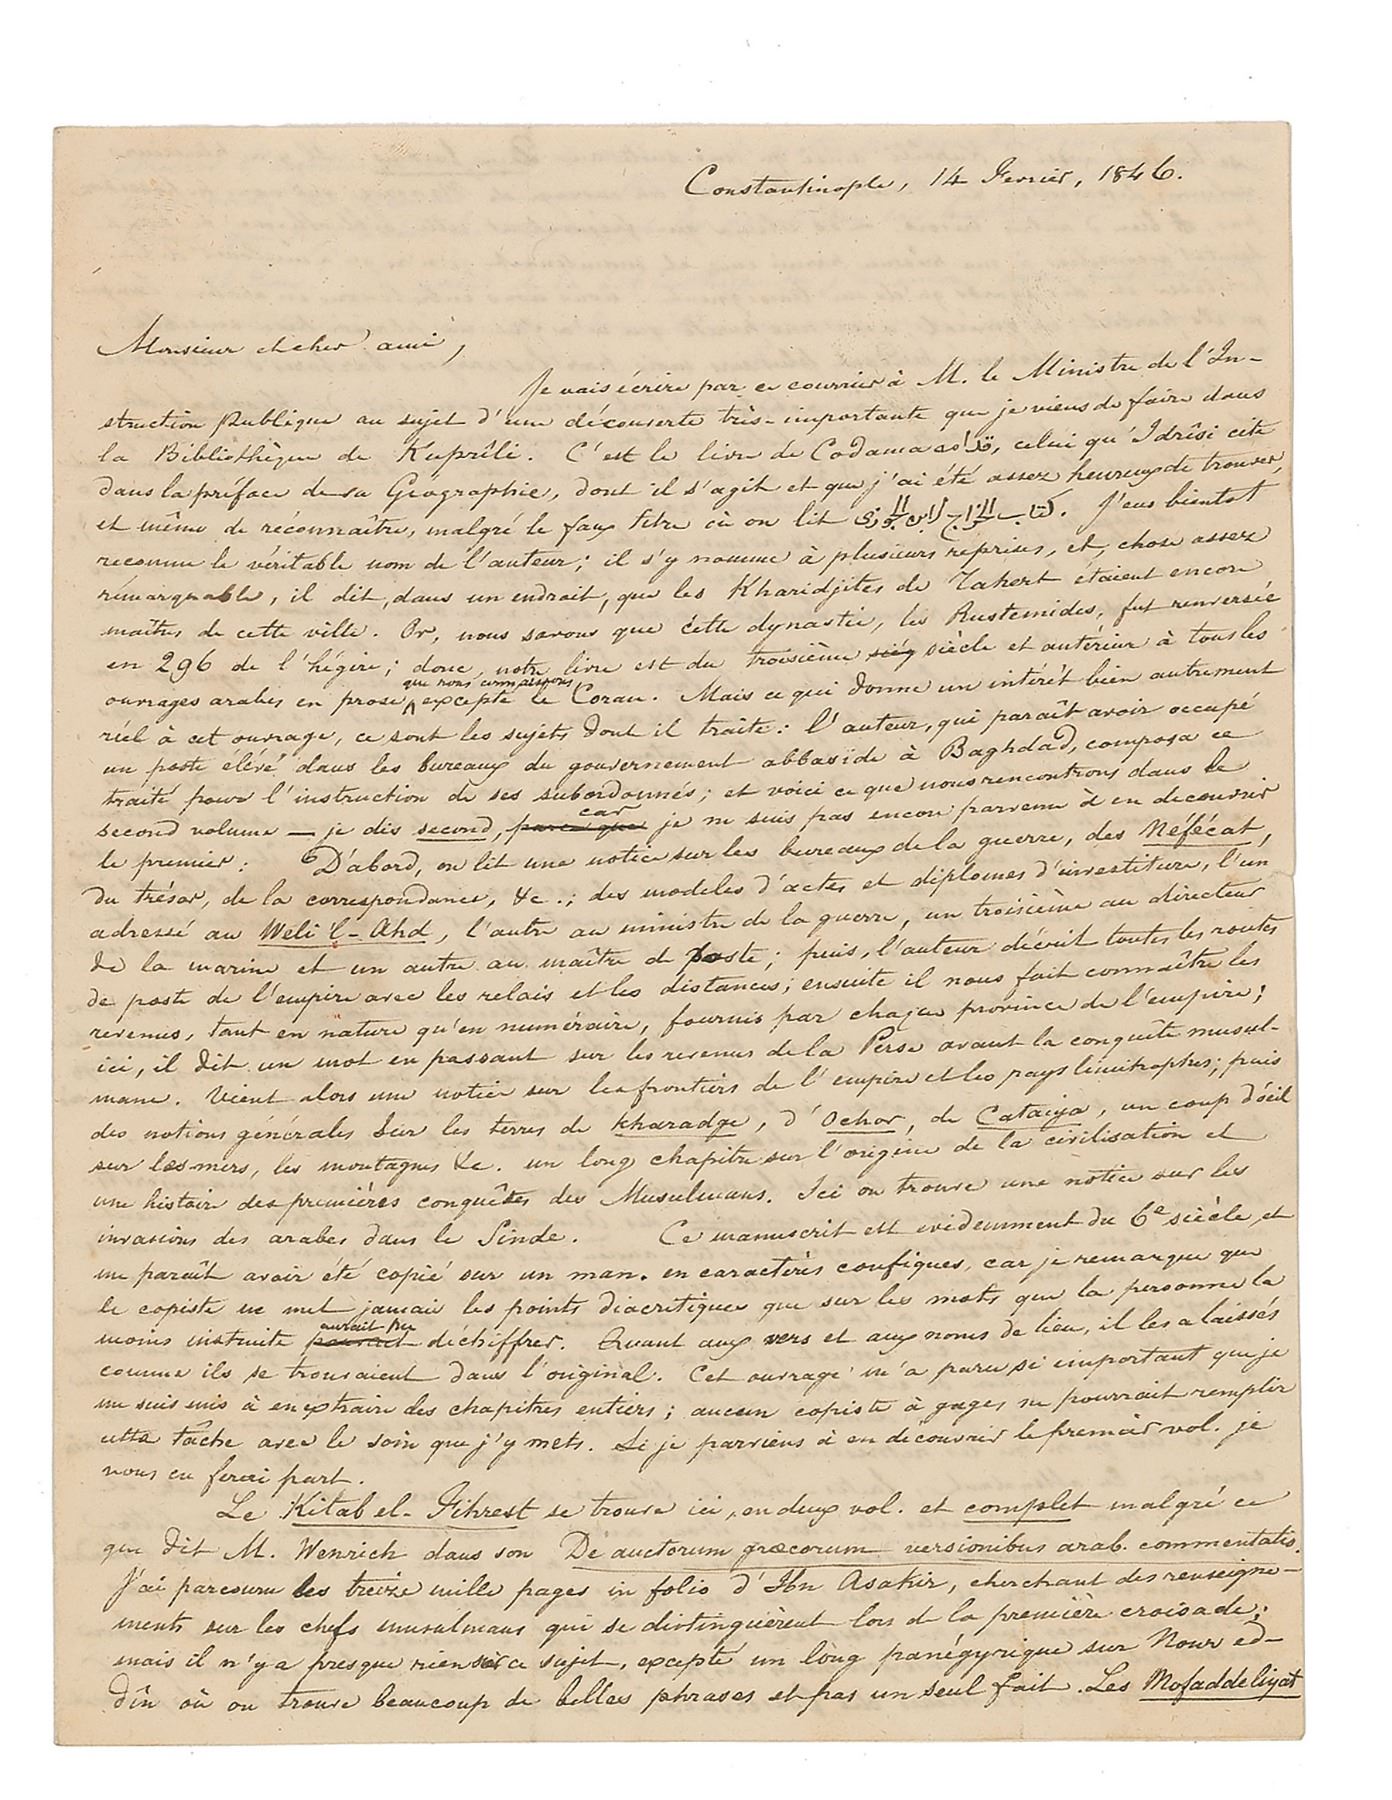 Constantinople, 14 Fevrier, 1846.
Monsieur et cher ami,
Je vais écrire par ce courrier à M. le Ministre de l'In-
struction Publique au sujet d'une découverte très-importante que je viens de faire dans
la Bibliothèque de Kuprîli. C'est le livre de Codama قدامه, celui qu'Idrîsi cite
dans la préface de sa Géographie, dont il s'agit et que j'ai été assez heureux de trouver,
et même de réconnaître, malgré le faux titre où on lit كتاب الخراج لابن الجوزى. J'eus bientot
reconnu le véritable nom de l'auteur; il s'y nomme à plusieurs reprises, et, chose assez
rémarquable, il dit, dans un endroit, que les Kharidjites de Tahert étaient encore
maîtres de cette ville. Or, nous savons que cette dynastie, les Rustemides, fut renversée
en 296 de l'hégire; donc notre livre est du troisième siècle et antérieur à tous les
ouvrages arabes en prose que nous connaissons, excepté le Coran. Mais ce qui donne un intérét bien autrement
réel à cet ouvrage, ce sont les sujets dont il traite: l'auteur, qui paraît avoir occupé
un poste élévé dans les bureaux du gouvernement abbaside à Baghdad, composa ce
traité pour l'instruction de ses subordonnés; et voici ce que nous rencontrons dans le
second volume — je dis second, parce que car je ne suis pas encore parvenu à en decouvrir
le premier: D'abord, on lit une notice sur les bureaux de la guerre, des Néfécat,
du trésor, de la correspondance, &c.; des modeles d'actes et diplomes d'investiture, l'un
adressé au Weli 'l-Ahd, l'autre au ministre de la guerre, un troisième au directeur
de la marine et un autre au maître de poste; puis, l'auteur décrit toutes les routes
de poste de l'empire avec les relais et les distances; ensuite il nous fait connaître les
revenus, tant en nature qu'en numéraire, fournis par chaque province de l'empire;
ici, il dit un mot en passant sur les revenus de la Perse avant la conquête musul-
mane. Vient alors une notice sur les frontiers de l'empire et les pays limitrophes; puis
des notions générales sur les terres de kharadge, d'Ochor, de Cataiya, un coup d'oeil
sur les mers, les montagnes &c. un long chapitre sur l'origine de la civilisation et
une histoire des premières conquêtes des Musulmans. Ici on trouve une notice sur les
invasions des arabes dans le Sinde. Ce manuscrit est evidemment du 6e siècle, et
me paraît avoir été copié sur un man. en caractères coufiques, car je remarque que
le copiste ne met jamais les points diacritiques que sur les mots que la personne la
moins instruite pourrait aurait pu déchiffrer. Quant aux vers et aux noms de lieu, il les a laissés
comme ils se trouvaient dans l'original. Cet ouvrage m'a paru si important que je
me suis mis à en extraire des chapitres entiers; aucun copiste à gages ne pourrait remplir
cette tâche avec le soin que j'y mets. Si je parviens à en découvrir le premier vol. je
vous en ferai part.
Le Kitab el-Fihrest se trouve ici, en deux vol. et complet malgré ce
que dit M. Wenrich dans son De auctorum græcorum versionibus arab. commentatio.
J'ai parcouru les treize mille pages in folio d'Ibn Asakir, cherchant des renseigne-
ments sur les chefs musulmans qui se distinguèrent lors de la première croisade;
mais il n'y a presque rien sur ce sujet, excepté un long panégyrique sur Nour ed-
dîn où on trouve beaucoup de belles phrases et pas un seul fait. Les Mofaddeliyat